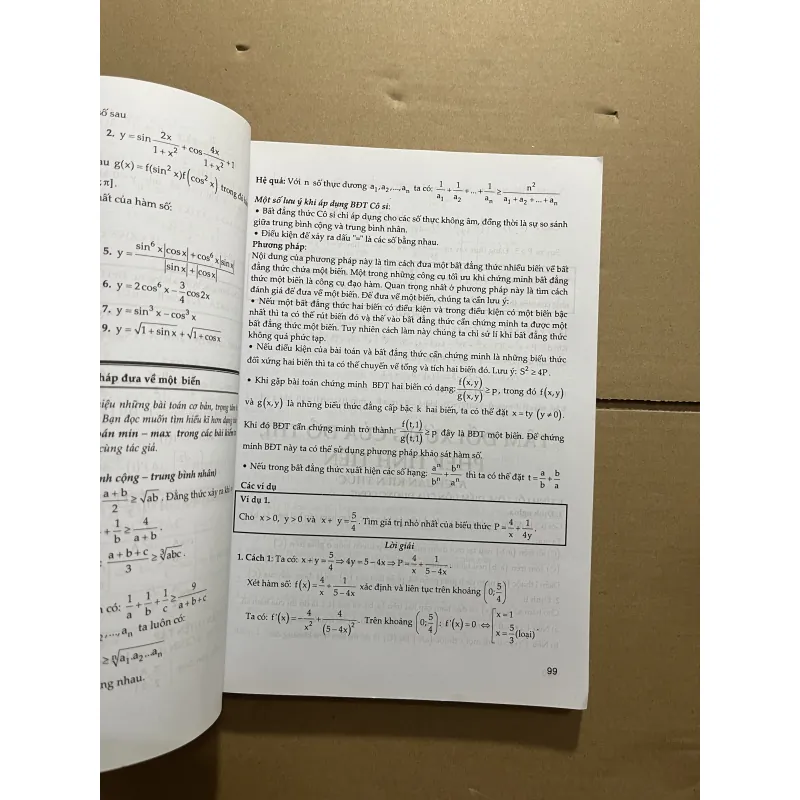 số sau
2. y = sin 2x/(1+x²) + cos 4x/(1+x²) + 1
au g(x) = f(sin² x)f(cos² x) trong đó
; π].
hất của hàm số:
5. y = (sin⁶ x|cos x| + cos⁶ x|sin x|)/(|sin x| + |cos x|)
6. y = 2cos⁶ x - 3/4 cos2x
7. y = sin³ x - cos³ x
9. y = √(1 + sin x) + √(1 + cos x)
háp đưa về một biến
iệu những bài toán cơ bản, trọng
Bạn đọc muốn tìm hiểu kĩ hơn
oán min - max trong các bài
cùng tác giả.
nh cộng - trung bình nhân)
(a + b)/2 ≥ √ab. Đẳng thức xảy ra khi
+ 1/b ≥ 4/(a + b).
(a + b + c)/3 ≥ ∛abc.
có: 1/a + 1/b + 1/c ≥ 9/(a + b + c)
₂,...,aₙ ta luôn có:
≥ ⁿ√(a₁.a₂...aₙ)
ng nhau.
Hệ quả: Với n số thực dương a₁,a₂,...,aₙ ta có: 1/a₁ + 1/a₂ + ... + 1/aₙ ≥ n²/(a₁ + a₂ + ... + aₙ)
Một số lưu ý khi áp dụng BĐT Cô si:
• Bất đẳng thức Cô si chỉ áp dụng cho các số thực không âm, đồng thời là sự so sánh
giữa trung bình cộng và trung bình nhân.
• Điều kiện để xảy ra dấu "=" là các số bằng nhau.
Phương pháp:
Nội dung của phương pháp này là tìm cách đưa một bất đẳng thức nhiều biến về bất
đẳng thức chứa một biến. Một trong những công cụ tối ưu khi chứng minh bất đẳng
thức một biến là công cụ đạo hàm. Quan trọng nhất ở phương pháp này là tìm cách
đánh giá để đưa về một biến. Để đưa về một biến, chúng ta cần lưu ý:
• Nếu một bất đẳng thức hai biến có điều kiện và trong điều kiện có một biến bậc
nhất thì ta có thể rút biến đó và thế vào bất đẳng thức cần chứng minh ta được một
bất đẳng thức một biến. Tuy nhiên cách làm này chúng ta chỉ sử lí khi bất đẳng thức
không quá phức tạp.
• Nếu điều kiện của bài toán và bất đẳng thức cần chứng minh là những biểu thức
đối xứng hai biến thì ta có thể chuyển về tổng và tích hai biến đó. Lưu ý: S² ≥ 4P.
• Khi gặp bài toán chứng minh BĐT hai biến có dạng: f(x,y)/g(x,y) ≥ p, trong đó f(x,y)
và g(x,y) là những biểu thức đẳng cấp bậc k hai biến, ta có thể đặt x = ty (y ≠ 0).
Khi đó BĐT cần chứng minh trở thành: f(t,1)/g(t,1) ≥ p đây là BĐT một biến. Để chứng
minh BĐT này ta có thể sử dụng phương pháp khảo sát hàm số.
• Nếu trong bất đẳng thức xuất hiện các số hạng: aⁿ/bⁿ + bⁿ/aⁿ thì ta có thể đặt t = a/b + b/a
Các ví dụ
Ví dụ 1.
Cho x > 0, y > 0 và x + y = 5/4. Tìm giá trị nhỏ nhất của biểu thức P = 4/x + 1/4y.
Lời giải
1. Cách 1: Ta có: x + y = 5/4 ⇒ 4y = 5 - 4x ⇒ P = 4/x + 1/(5 - 4x).
Xét hàm số: f(x) = 4/x + 1/(5 - 4x) xác định và liên tục trên khoảng (0; 5/4)
Ta có: f'(x) = -4/x² + 4/(5 - 4x)². Trên khoảng (0; 5/4): f'(x) = 0 ⇔ [x = 1; x = 5/3 (loại).
99